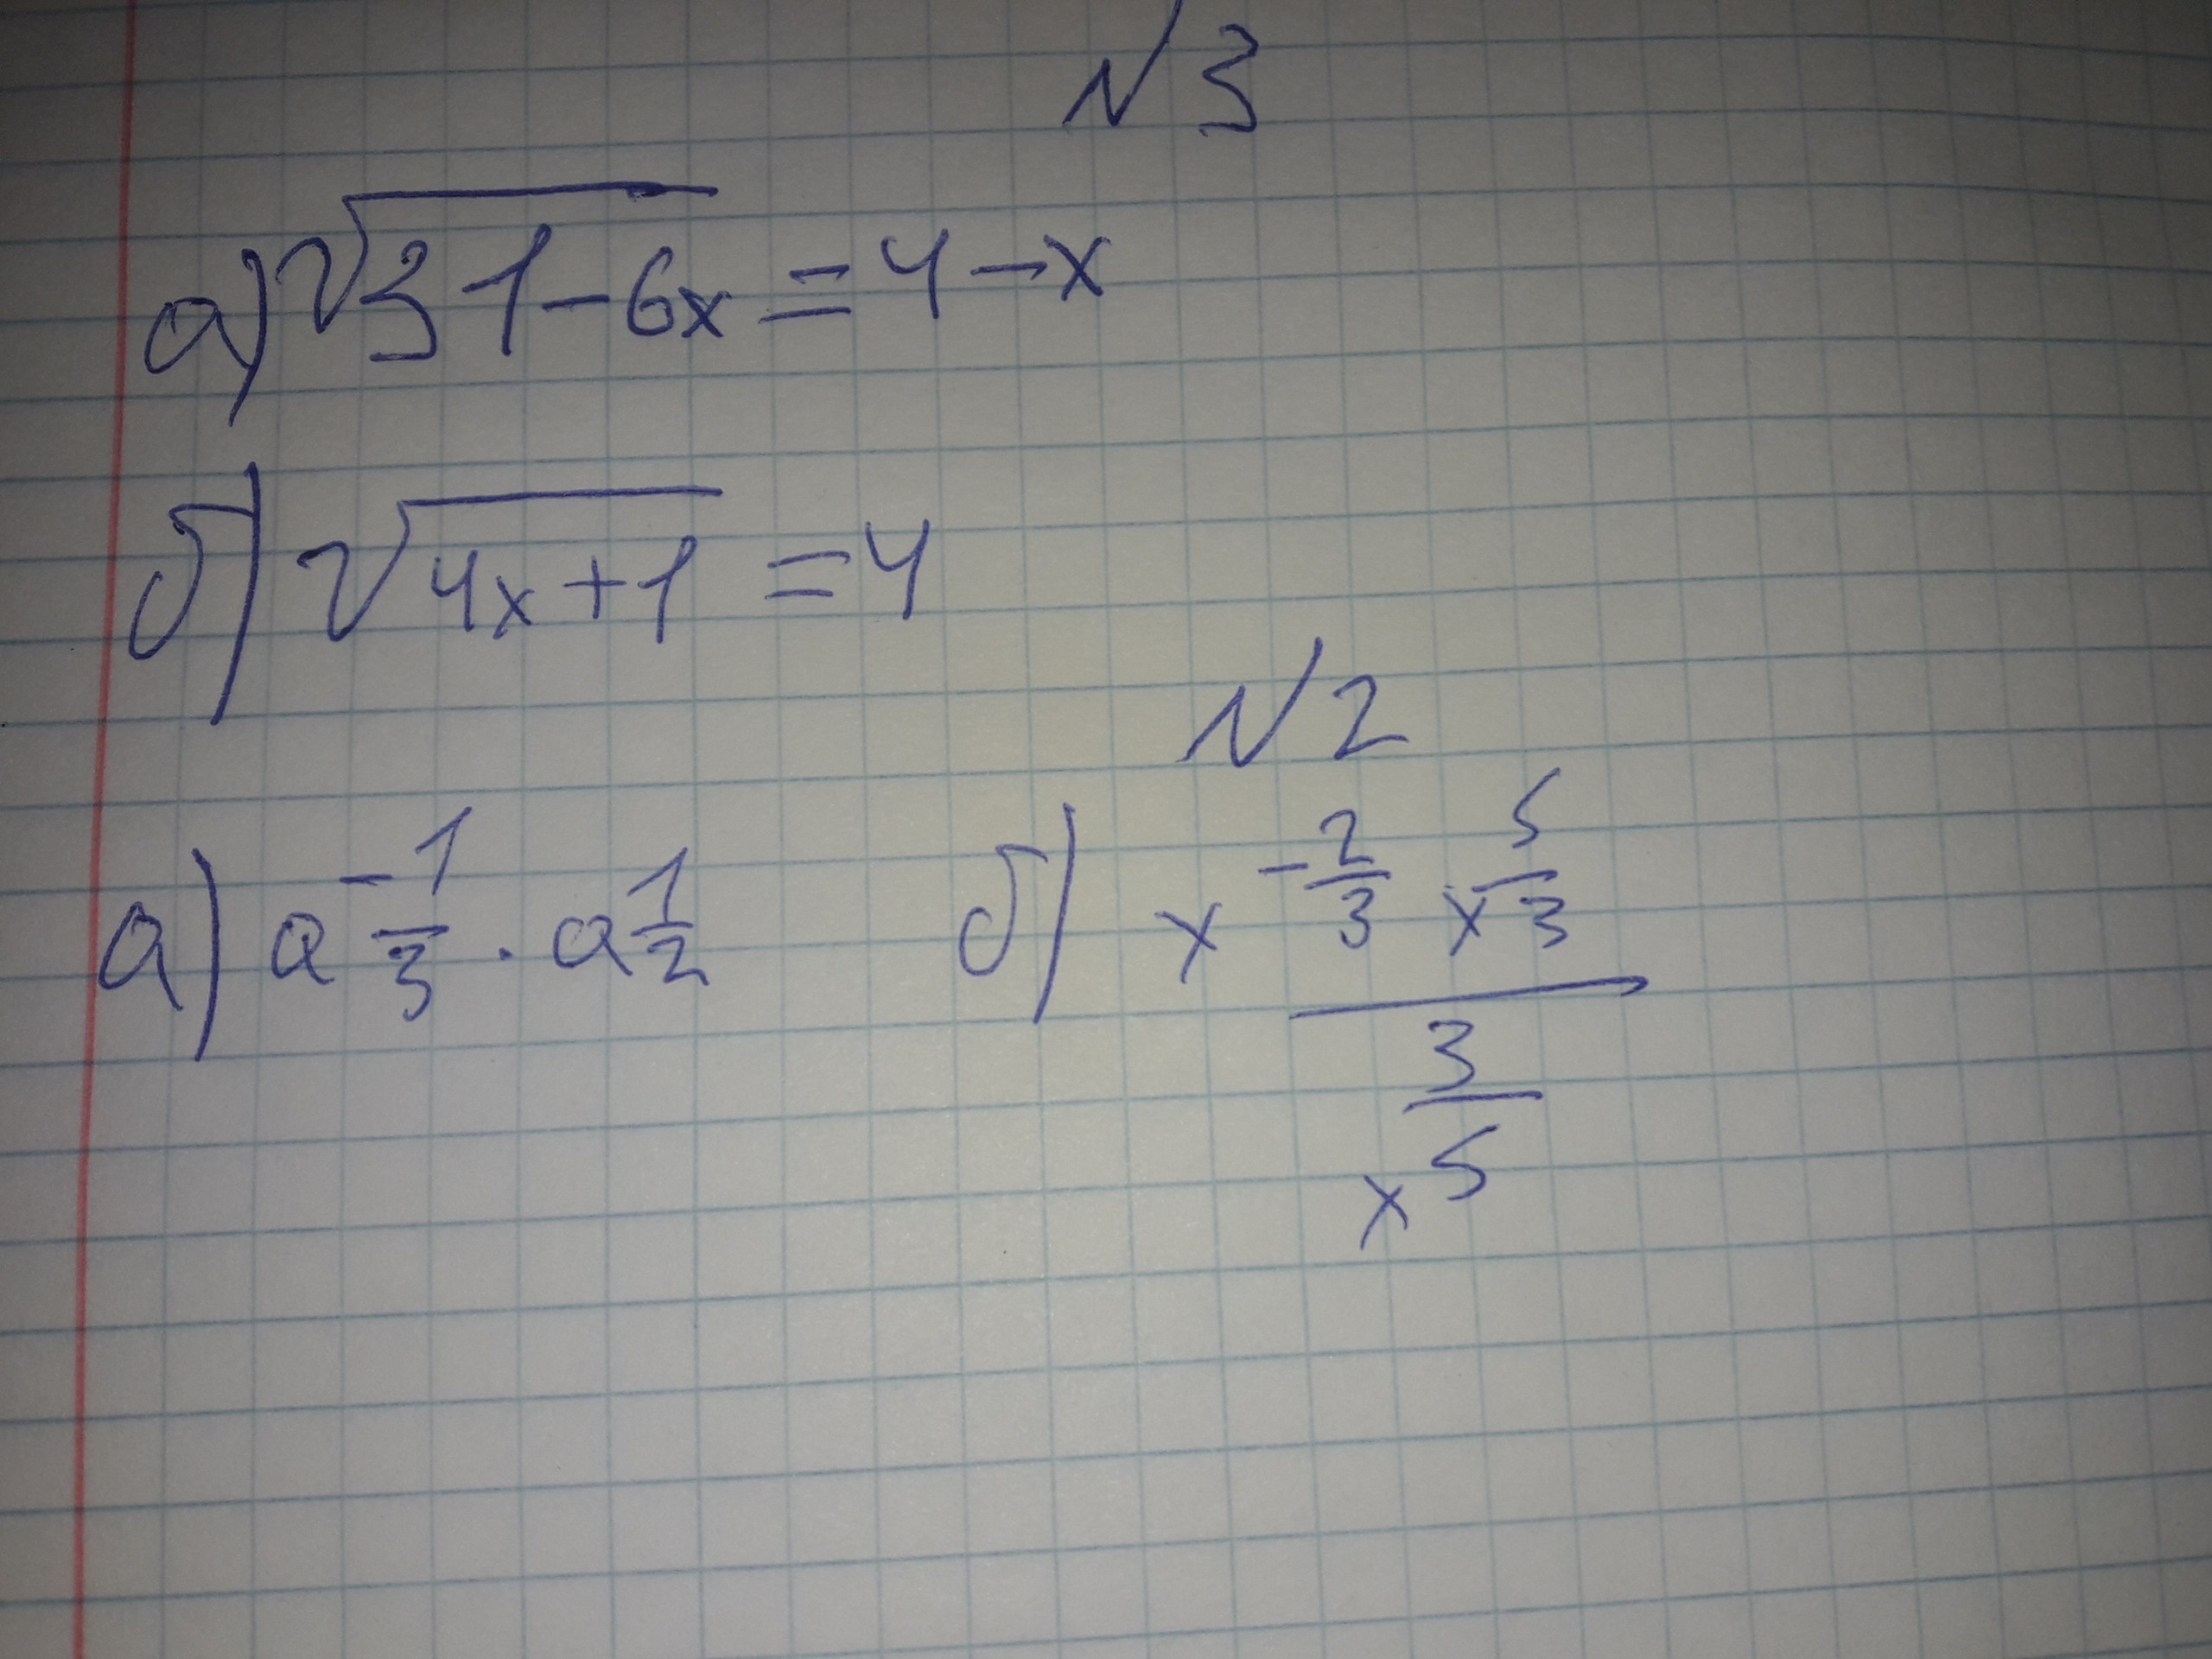 №3
а) √(31-6x) = 4-x
б) √(4x+1) = 4
№2
а) a^(-1/3) · a^(1/2) б) (x^(-2/3) x^(5/3)) / (x^(3/5))